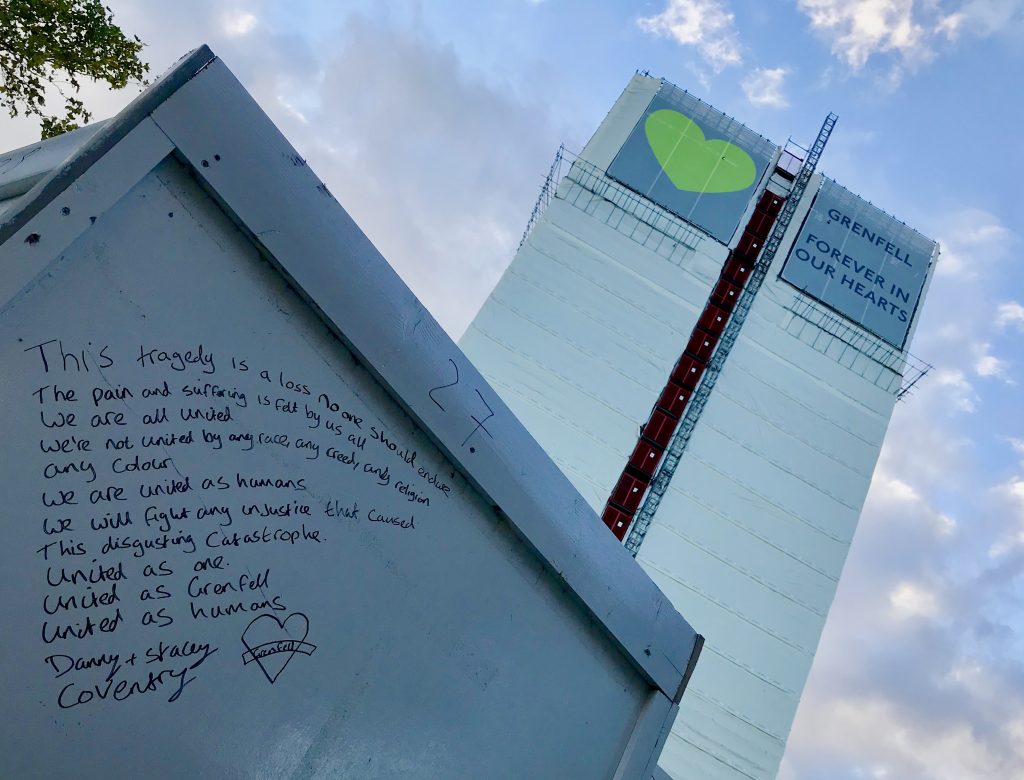 This tragedy is a loss no one should endure
The pain and suffering is felt by us all
We are all united
We're not united by any race, any creed, any religion
any colour
We are united as humans
We will fight any injustice that caused
This disgusting Catastrophe.
United as one.
United as Grenfell
United as humans
Danny + Stacey
Coventry
Grenfell
27
GRENFELL
FOREVER IN
OUR HEARTS